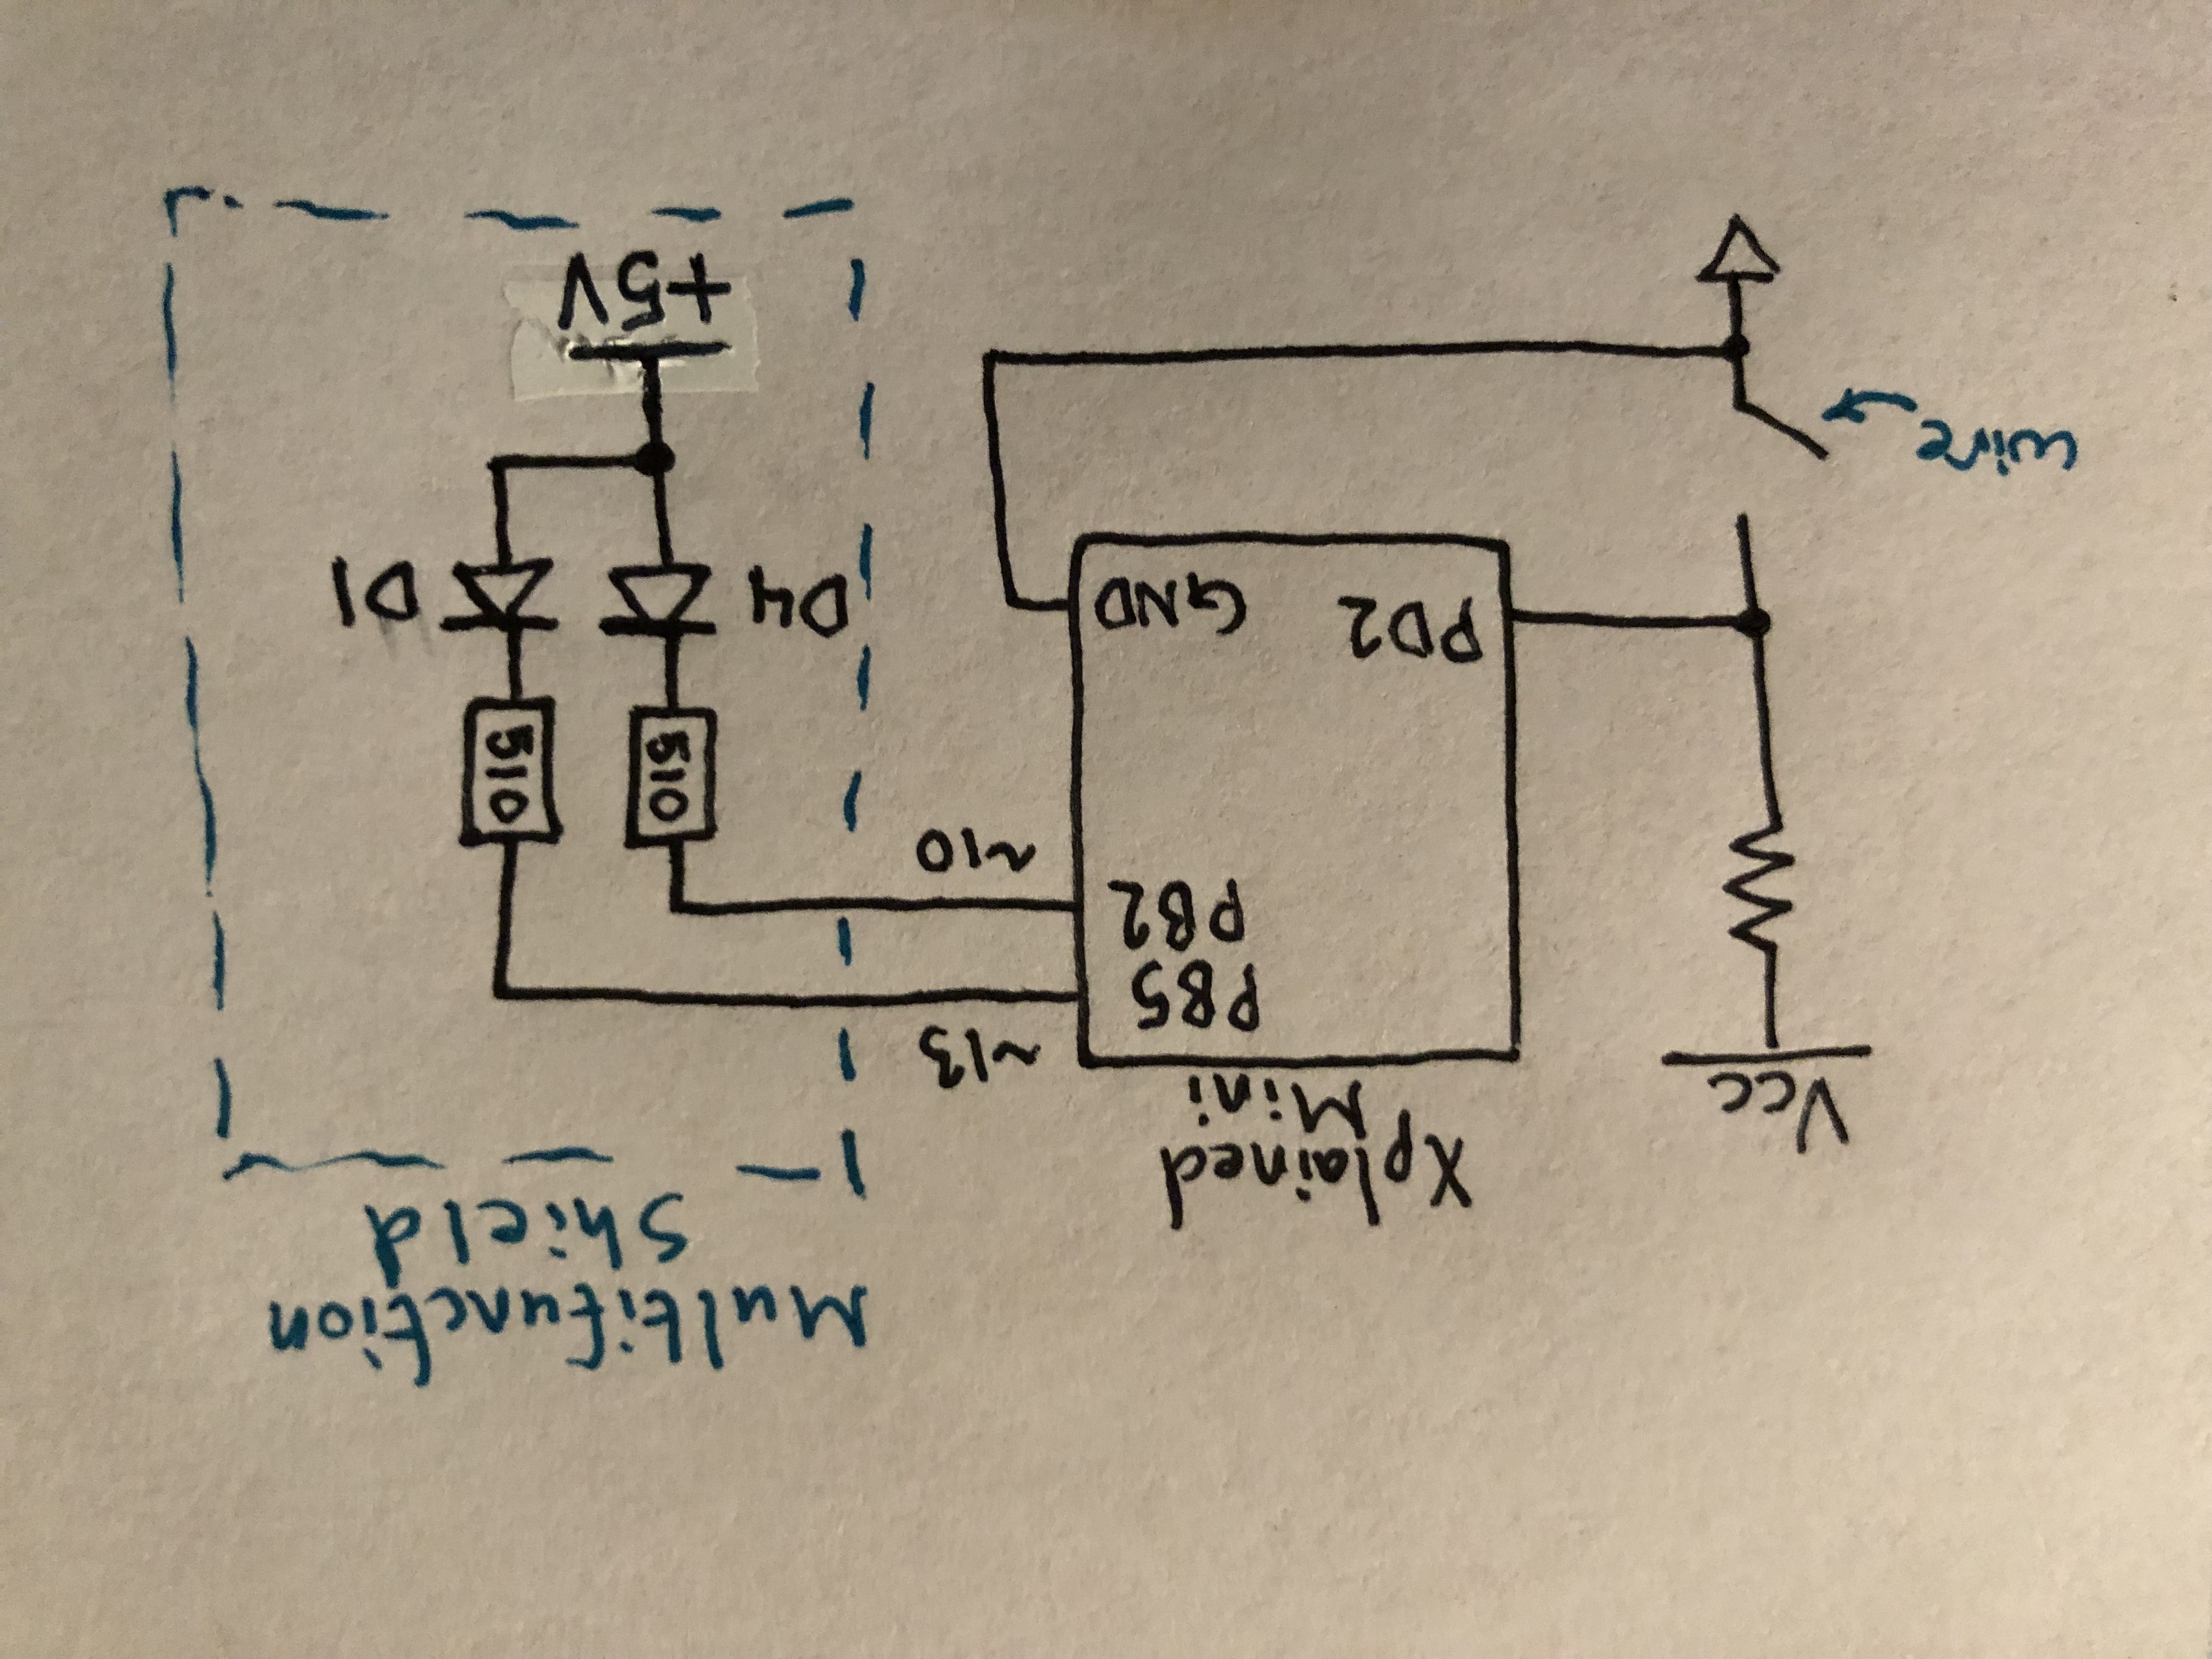 Multifunction
Shield
Xplained
Mini
Vcc
~13
PB5
PB2
~10
510
510
PD2
GND
D4
D1
wire
+5V